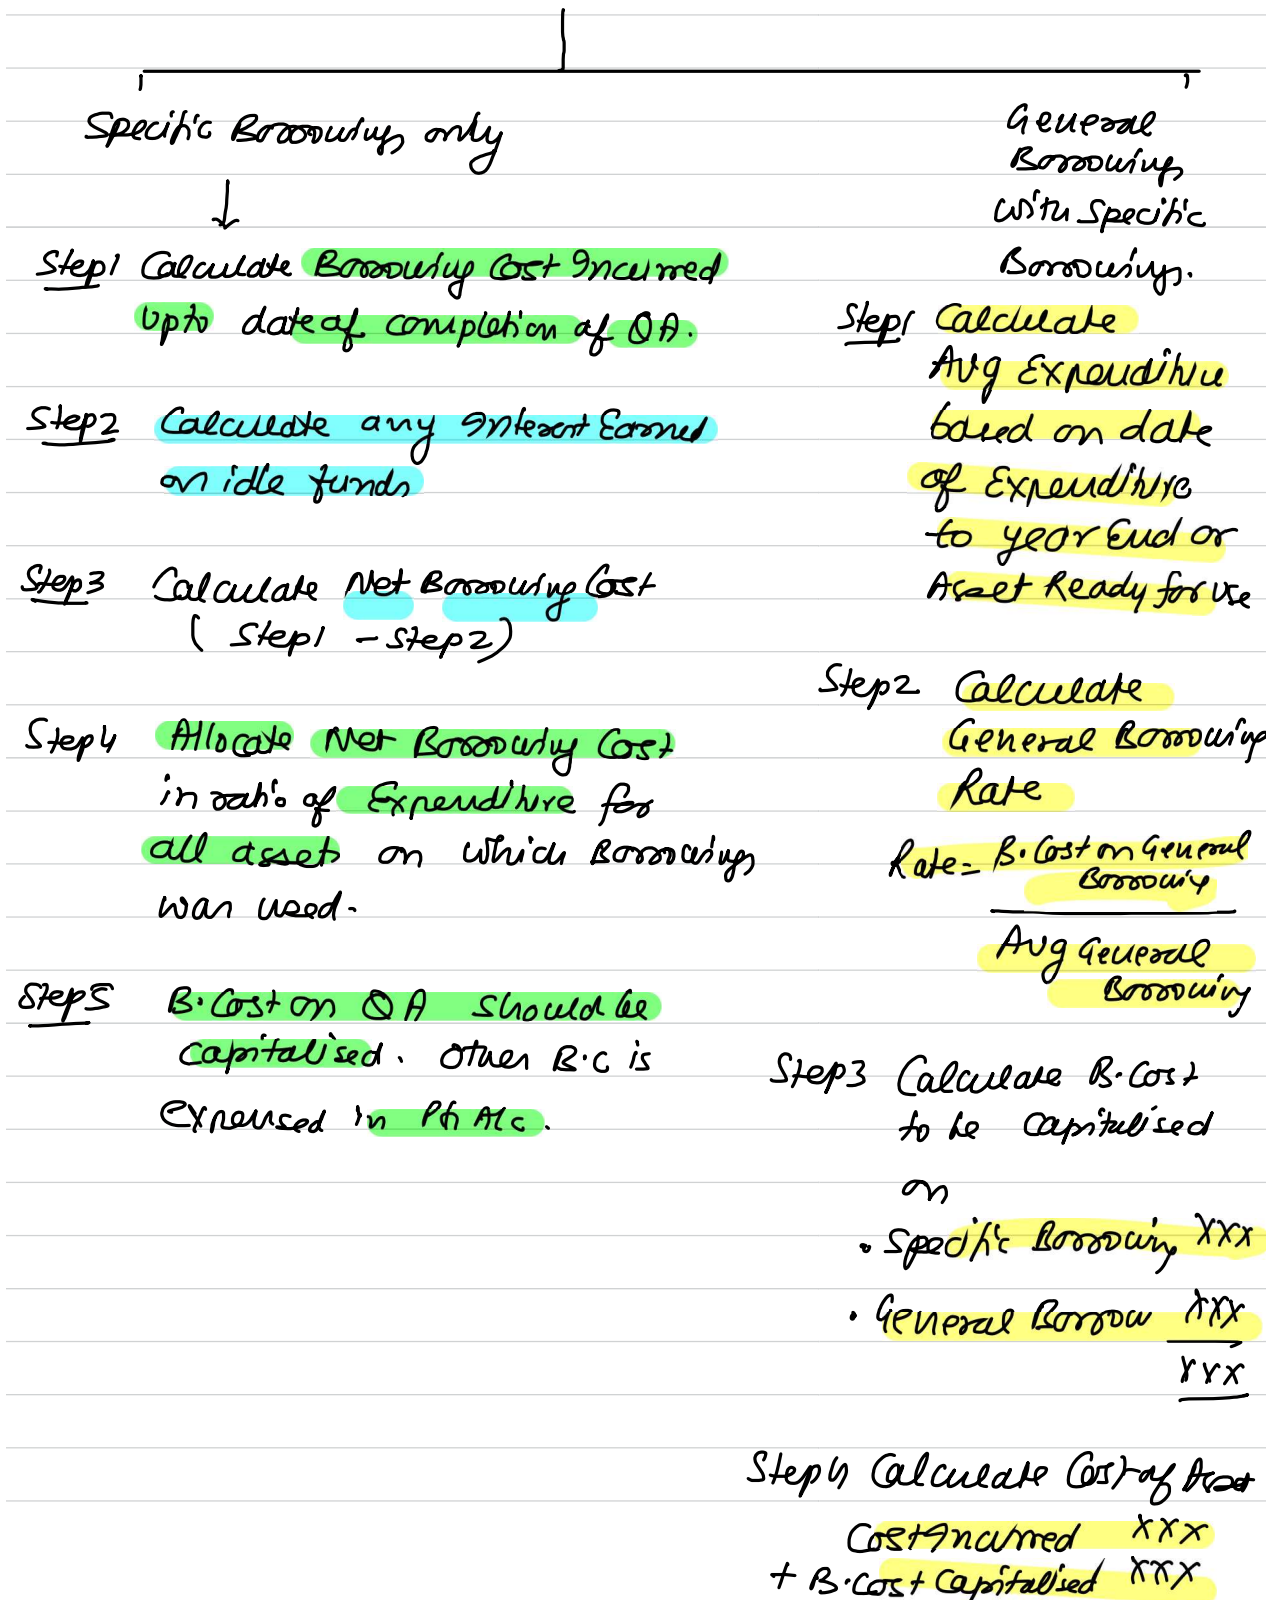 Specific Borrowings only
Step1 Calculate Borrowing Cost Incurred
upto date of completion of QA.
Step2 Calculate any Interest Earned
on idle funds
Step3 Calculate Net Borrowing Cost
( Step1 - Step2)
Step4 Allocate Net Borrowing Cost
in ratio of Expenditure for
all assets on which Borrowings
was used.
Step5 B.Cost on QA should be
capitalised. Other B.C is
expensed in P&L A/c.
General
Borrowings
with Specific
Borrowings.
Step1 Calculate
Avg Expenditure
based on date
of Expenditure
to year End or
Asset Ready for use
Step2 Calculate
General Borrowing
Rate
Rate = B.Cost on General
Borrowing
Avg General
Borrowing
Step3 Calculate B.Cost
to be capitalised
on
• Specific Borrowing XXX
• General Borrow XXX
XXX
Step4 Calculate Cost of Asset
Cost Incurred XXX
+ B.Cost Capitalised XXX